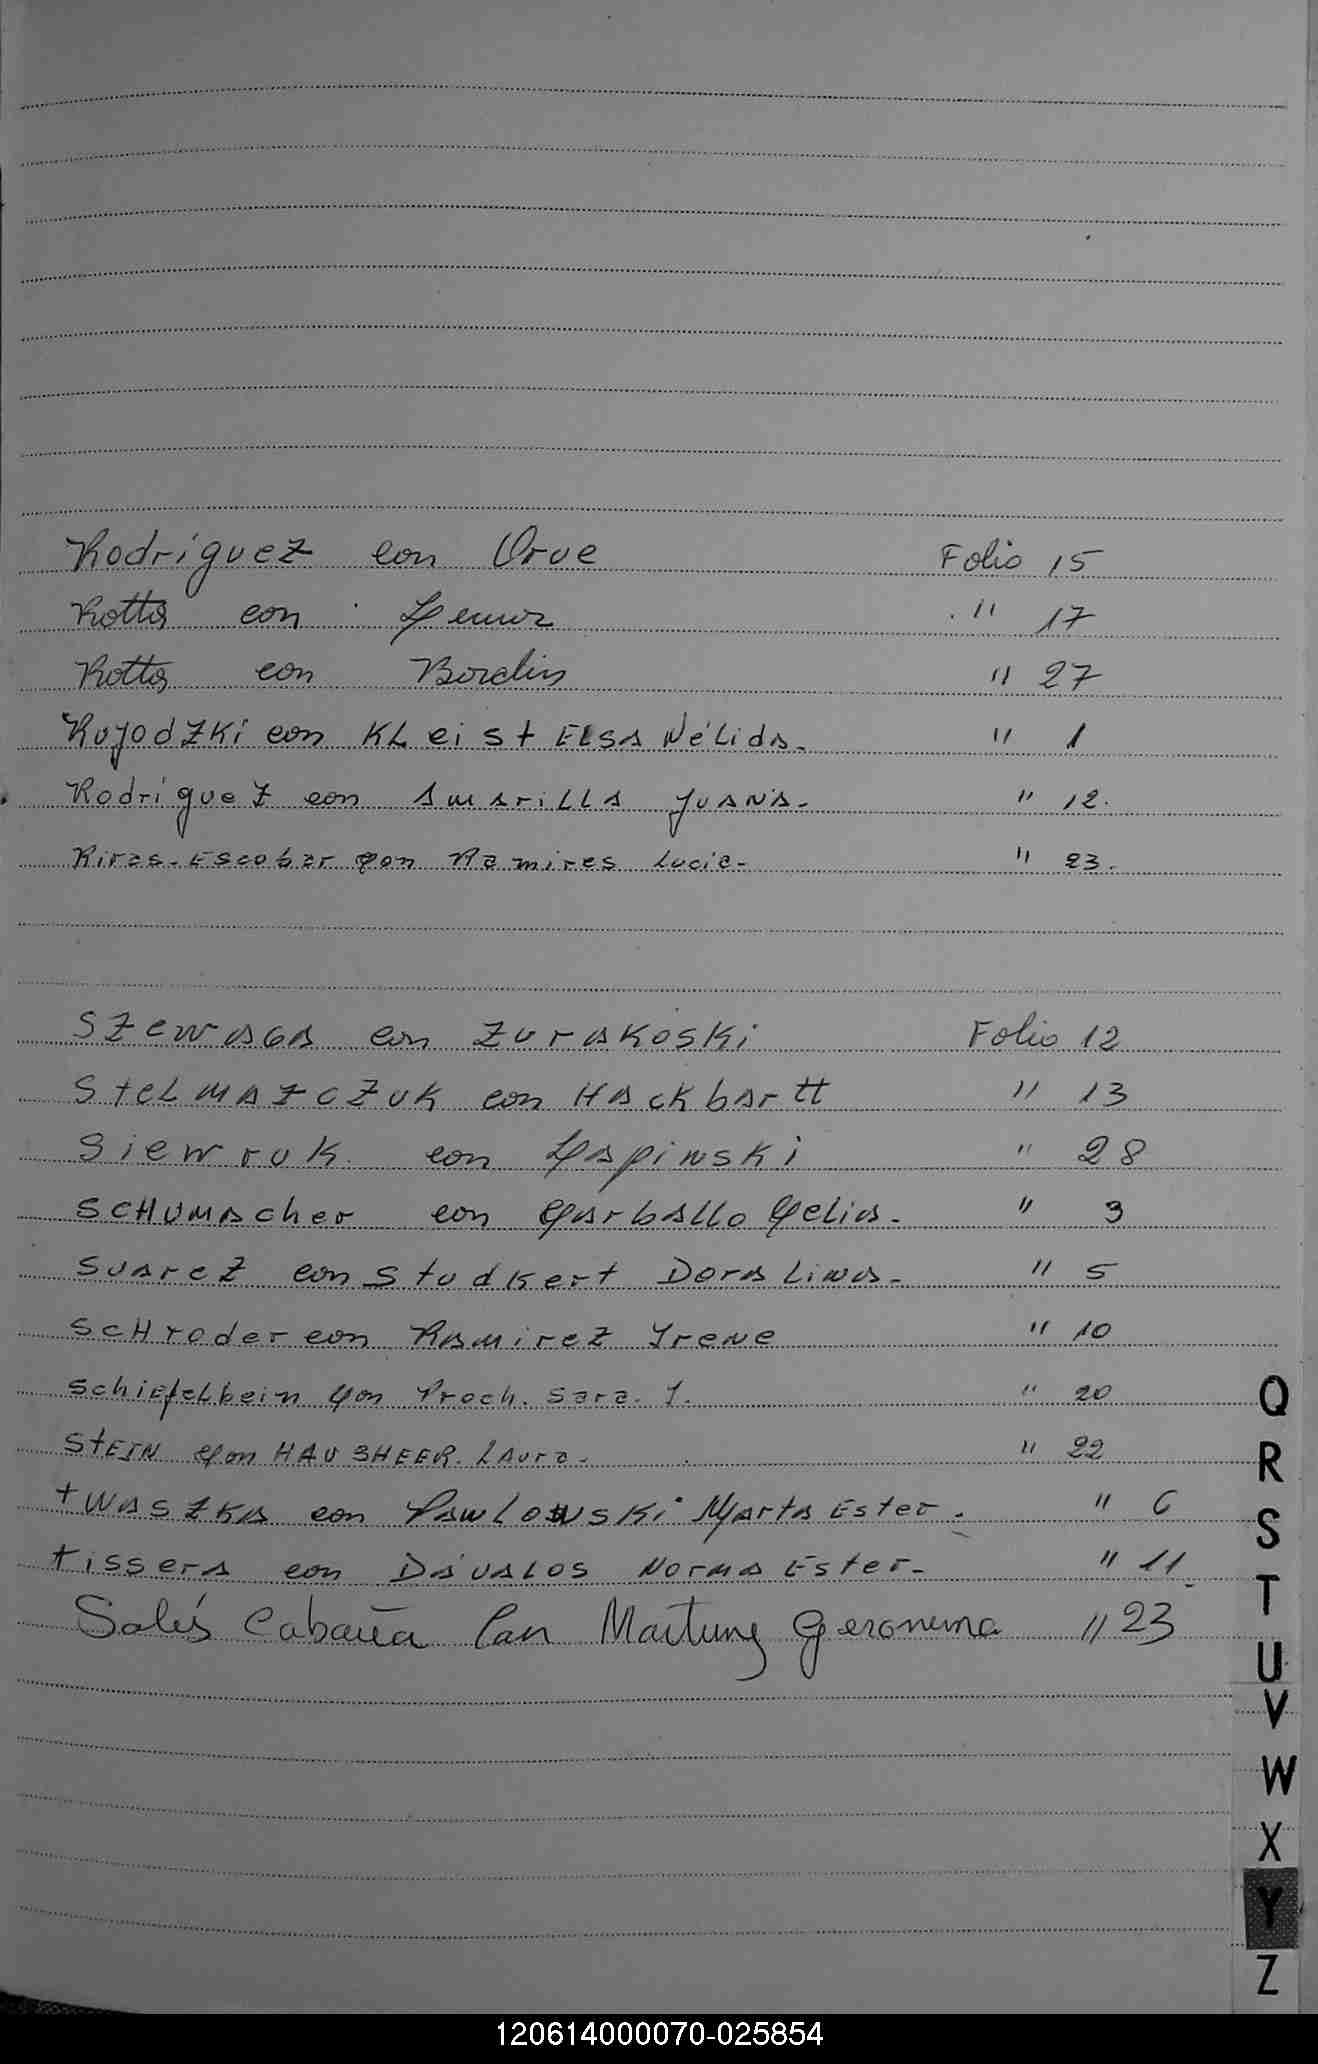 Rodríguez con Orue Folio 15
Rotta con Lemur " 17
Rotta con Bordin " 27
Rujodzki con Kleist Elsa Nélida. " 1
Rodríguez con Amarilla Juana. " 12.
Riras-Escobar Con Ramires Lucia- " 23.
Szewaga con Zurakoski Folio 12
Stelmaszczuk con Hackbartt " 13
Siewruk con Lapinski " 28
Schumacher con Carballo Celia. " 3
Suarez con Studkert Dora Lina. " 5
Schroder con Ramirez Irene " 10
Schiefelbein Con Proch. Sara. I. " 20
Stein Con Hausheer. Laura. " 22
Twaszka con Pawlowski Marta Ester. " 6
Tissera con Dávalos Norma Ester. " 11
Cabaña Con Geronima " 23
Q
R
S
T
U
V
W
X
Y
Z
120614000070-025854